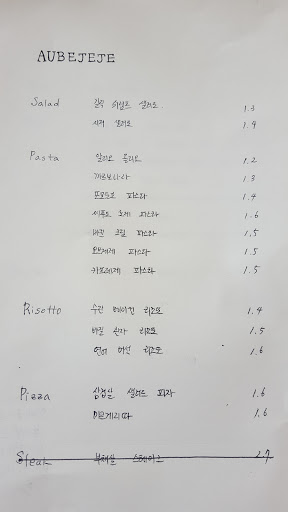 AUBEJEJE
Salad 감자 샐러드 1.3
시저 샐러드 1.9
Pasta 알리오 올리오 1.2
까르보나라 1.3
뽀모도로 파스타 1.4
씨푸드 토제 파스타 1.6
크림 파스타 1.5
파스타 1.5
카프레제 파스타 1.5
Risotto 베이컨 리조또 1.4
리조또 1.5
연어 버섯 리조또 1.6
Pizza 삼겹살 샐러드 피자 1.6
마르게리따 1.6
Steak 부채살 스테이크 2.7